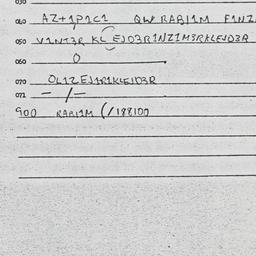 030
040 AZ+1P1C1 QW RABI1M F1NZ
050 V1NT3R KL EJD3R1NZ1M3RKLEJD3R
060 0
070 OL1ZEJ1R1KLEJD3R
071 - /-
900 RABI1M (/188100